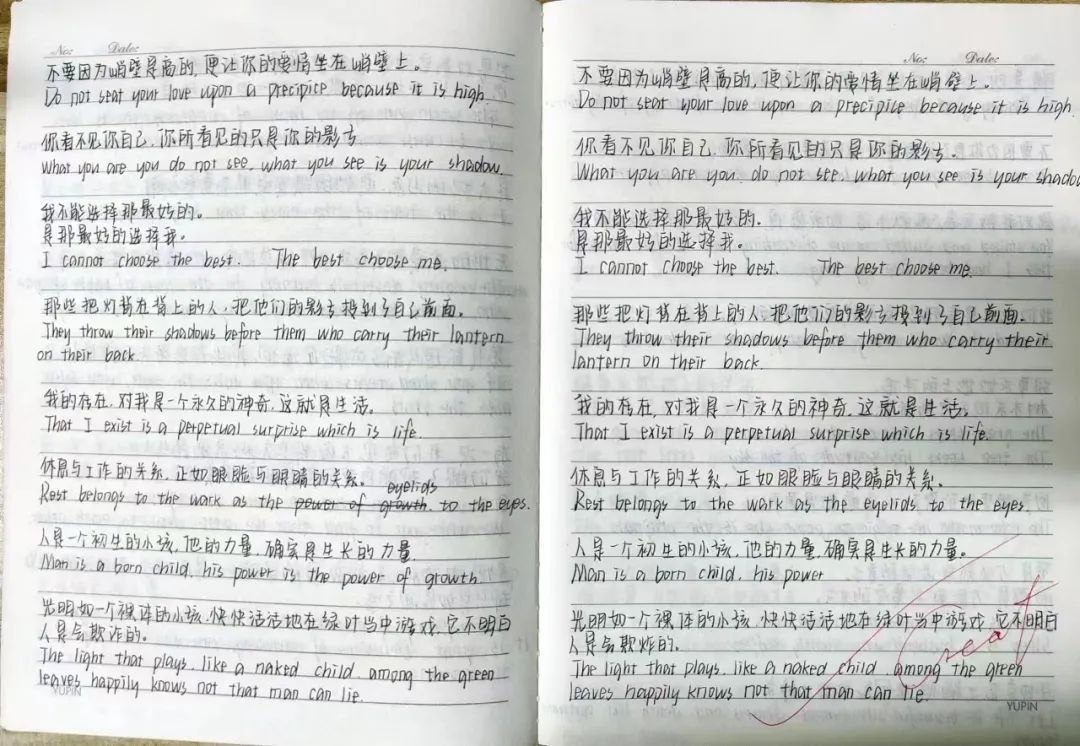 No: Date:
不要因为峭壁是高的,便让你的爱情坐在峭壁上。
Do not seat your love upon a precipice because it is high.
你看不见你自己,你所看见的只是你的影子
What you are you do not see, what you see is your shadow.
我不能选择那最好的。
是那最好的选择我。
I cannot choose the best. The best choose me.
那些把灯背在背上的人,把他们的影子投到了自己前面。
They throw their shadows before them who carry their lantern
on their back.
我的存在,对我是一个永久的神奇,这就是生活。
That I exist is a perpetual surprise which is life.
休息与工作的关系,正如眼睑与眼睛的关系。
eyelids
Rest belongs to the work as the power of growth to the eyes.
人是一个初生的小孩,他的力量,确实是生长的力量
Man is a born child, his power is the power of growth.
光明如一个裸体的小孩,快快活活地在绿叶当中游戏,它不明白
人是会欺诈的。
The light that plays, like a naked child, among the green
leaves happily knows not that man can lie.
YUPIN
No: Date:
不要因为峭壁是高的,便让你的爱情坐在峭壁上。
Do not seat your love upon a precipice because it is high.
你看不见你自己,你所看见的只是你的影子。
What you are you, do not see, what you see is your shadow
我不能选择那最好的.
是那最好的选择我。
I cannot choose the best. The best choose me.
那些把灯背在背上的人,把他们的影子投到了自己前面.
They throw their shadows before them who carry their
lantern on their back.
我的存在,对我是一个永久的神奇,这就是生活。
That I exist is a perpetual surprise which is life.
休息与工作的关系,正如眼睑与眼睛的关系.
Rest belongs to the work as the eyelids to the eyes.
人是一个初生的小孩,他的力量,确实是生长的力量。
Man is a born child, his power
光明如一个裸体的小孩,快快活活地在绿叶当中游戏,它不明白
人是会欺炸的。
Great
The light that plays, like a naked child, among the green
leaves happily knows not that man can lie.
YUPIN